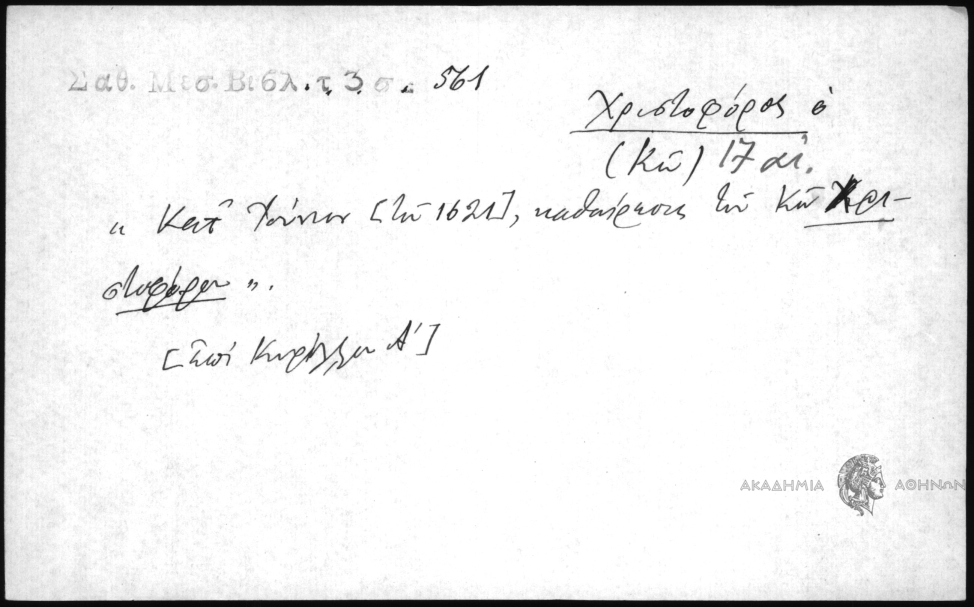 Σαθ. Μεσ. Βιβλ. τ. 3 σ. 561
Χριστοφόρος ὁ
(Κῶ) 17 αἰ.
" Κατ' Ἰούνιον [τοῦ 1621], καθαίρεσις τοῦ Κῶ Χρι-
στοφόρου ".
[Ἐπὶ Κυρίλλου Α']
ΑΚΑΔΗΜΙΑ ΑΘΗΝΩΝ